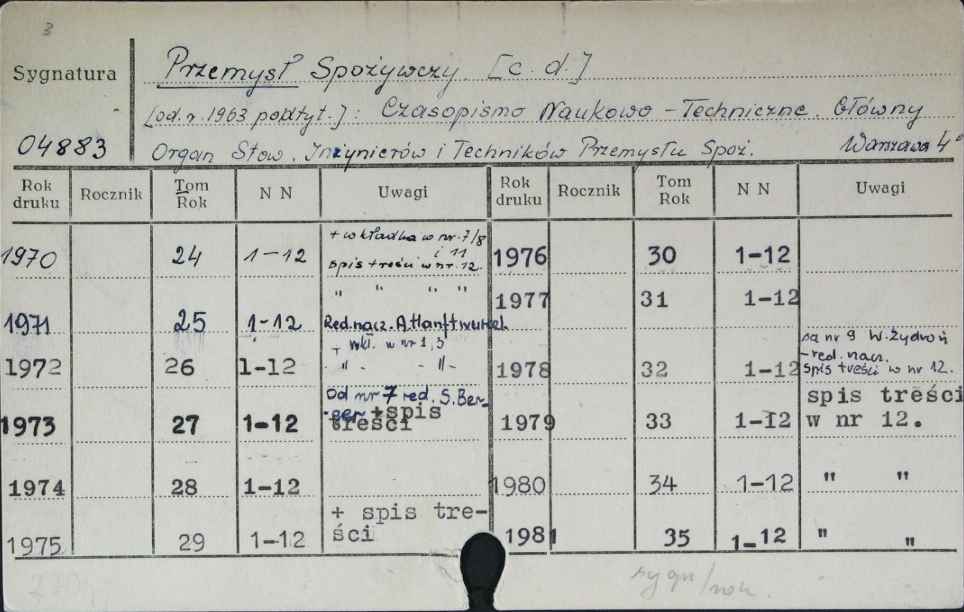 3
Sygnatura
Przemysł Spożywczy [c.d.]
[od r. 1963 podtyt.]: Czasopismo Naukowo-Techniczne. Główny
04883
Organ Stow. Inżynierów i Techników Przemysłu Spoż. Warszawa 4°
Rok druku Rocznik Tom Rok N N Uwagi Rok druku Rocznik Tom Rok N N Uwagi
1970 24 1-12 + wkładka w nr. 7/8 i 11 spis treści w nr. 12. 1976 30 1-12
" " " " 1977 31 1-12
1971 25 1-12 Red. nacz.
+ wkl. w nr 1,3
1972 26 1-12 " " 1978 32 1-12 nr 9 W. Żydroń - red. nacz. spis treści w nr 12.
1973 27 1-12 Od nr 7 red. S. Ber-ger + spis treści 1979 33 1-12 spis treści w nr 12.
1974 28 1-12 1980 34 1-12 " "
1975 29 1-12 + spis tre-ści 1981 35 1-12 " "